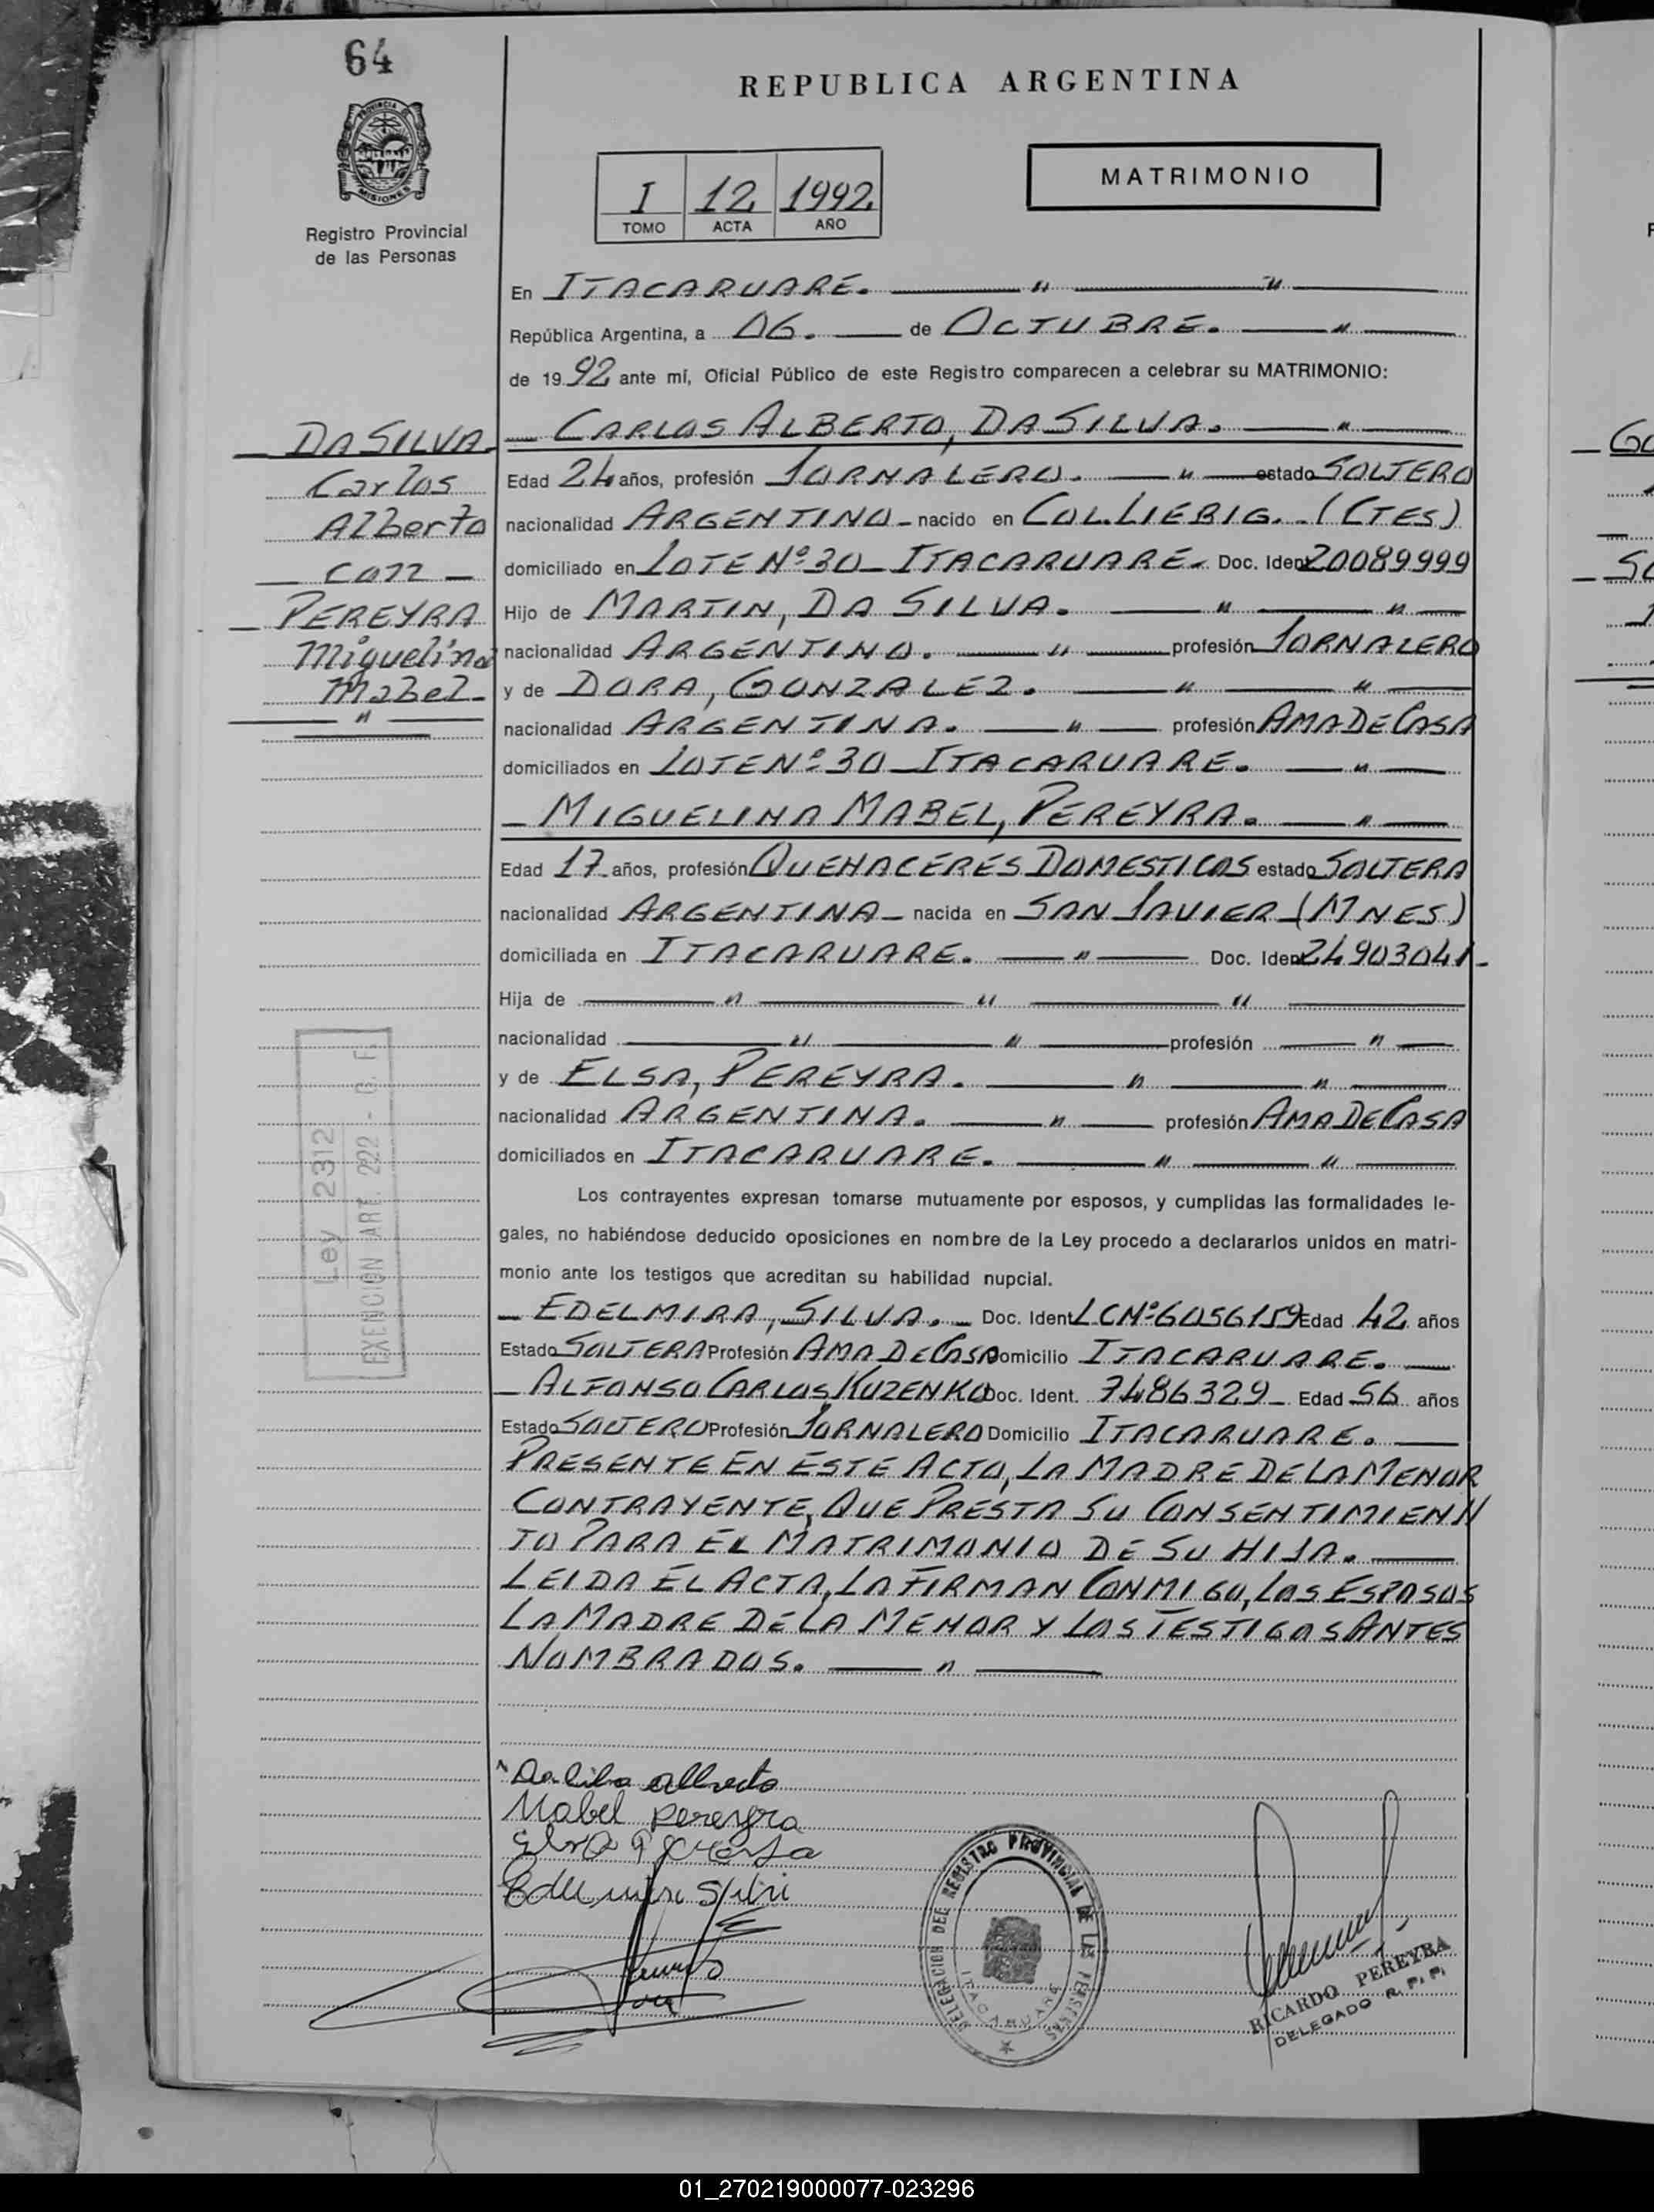 64
REPUBLICA ARGENTINA
PROVINCIA DE
MISIONES
MATRIMONIO
I 12 1992
TOMO ACTA AÑO
Registro Provincial
de las Personas
En ITACARUARE.
República Argentina, a 06. de OCTUBRE.
de 1992 ante mí, Oficial Público de este Registro comparecen a celebrar su MATRIMONIO:
DA SILVA
Carlos
Alberto
con
PEREYRA
Miguelina
Mabel
CARLOS ALBERTO, DA SILVA.
Edad 24 años, profesión JORNALERO. estado SOLTERO
nacionalidad ARGENTINO nacido en COL. LIEBIG. (CTES)
domiciliado en LOTE Nº 30 - ITACARUARE. Doc. Ident 20089999
Hijo de MARTIN, DA SILVA.
nacionalidad ARGENTINO. profesión JORNALERO
y de DORA, GONZALEZ.
nacionalidad ARGENTINA. profesión AMA DE CASA
domiciliados en LOTE Nº 30 - ITACARUARE.
MIGUELINA MABEL, PEREYRA.
Edad 17 años, profesión QUEHACERES DOMESTICOS estado SOLTERA
nacionalidad ARGENTINA nacida en SAN JAVIER (MNES)
domiciliada en ITACARUARE. Doc. Ident 24903041
Hija de
nacionalidad profesión
y de ELSA, PEREYRA.
nacionalidad ARGENTINA. profesión AMA DE CASA
domiciliados en ITACARUARE.
Ley 2312
EXENCION ART. 222 - C. F.
Los contrayentes expresan tomarse mutuamente por esposos, y cumplidas las formalidades le-
gales, no habiéndose deducido oposiciones en nombre de la Ley procedo a declararlos unidos en matri-
monio ante los testigos que acreditan su habilidad nupcial.
EDELMIRA, SILVA. Doc. Ident LC Nº 6056159 Edad 42 años
Estado SOLTERA Profesión AMA DE CASA Domicilio ITACARUARE.
ALFONSO CARLOS, KUZENKO Doc. Ident. 7486329 Edad 56 años
Estado SOLTERO Profesión JORNALERO Domicilio ITACARUARE.
PRESENTE EN ESTE ACTO, LA MADRE DE LA MENOR
CONTRAYENTE, QUE PRESTA SU CONSENTIMIEN
TO PARA EL MATRIMONIO DE SU HIJA.
LEIDA EL ACTA, LA FIRMAN CONMIGO, LOS ESPOSOS
LA MADRE DE LA MENOR Y LOS TESTIGOS ANTES
NOMBRADOS.
Mabel pereyra
DELEGACION DEL REGISTRO PROVINCIAL DE LAS PERSONAS
ITACARUARE
RICARDO PEREYRA
DELEGADO R. P. P.
01_270219000077-023296